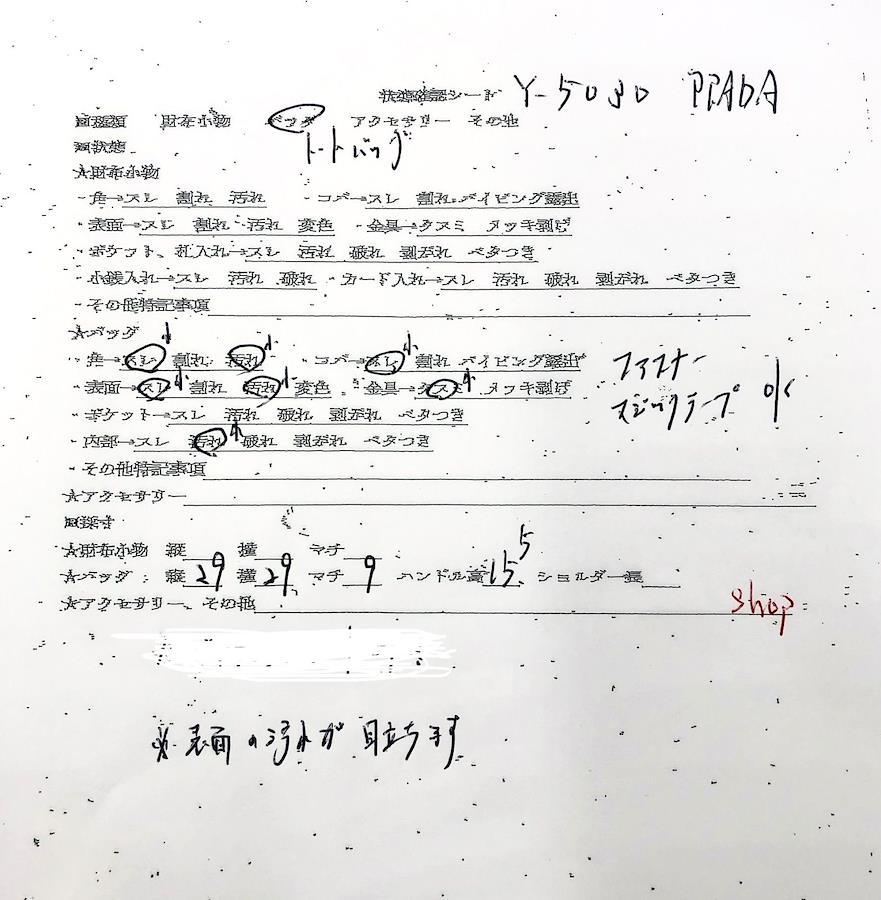 状態確認シート Y-5080 PRADA
■種類 財布小物 バッグ アクセサリー その他
トートバッグ
■状態
★財布小物
・角→スレ 割れ 汚れ ・コバ→スレ 割れ パイピング露出
・表面→スレ 割れ 汚れ 変色 ・金具→クスミ メッキ剥げ
・ポケット、札入れ→スレ 汚れ 破れ 剥がれ ベタつき
・小銭入れ→スレ 汚れ 破れ ・カード入れ→スレ 汚れ 破れ 剥がれ ベタつき
・その他特記事項
★バッグ
・角→スレ小 割れ 汚れ小 ・コバ→スレ小 割れ パイピング露出
ファスナー
・表面→スレ小 割れ 汚れ小 変色 ・金具→クスミ小 メッキ剥げ
マジックテープ OK
・ポケット→スレ 汚れ 破れ 剥がれ ベタつき
・内部→スレ 汚れ小 破れ 剥がれ ベタつき
・その他特記事項
★アクセサリー
■採寸
★財布小物 縦 横 マチ
★バッグ:縦29 横29 マチ9 ハンドル高15.5 ショルダー長
★アクセサリー、その他
shop
※表面の汚れが目立ちます